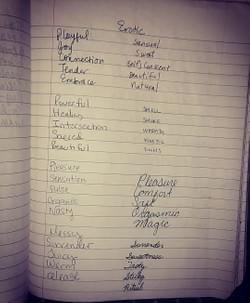 Erotic
Playful Sensual
Joy Sweet
Connection Self Consent
Tender Beautiful
Embrace Natural
Powerful Small
Healing
Intersection Warmth
Sacred
Beautiful
Pleasure
Sensation Pleasure
Pulse Comfort
Organic Soft
Nasty Orgasmic
Magic
Messy
Surrender Surrender
Juicy Sweetness
Warm Tasty
Release Sticky
Ritual